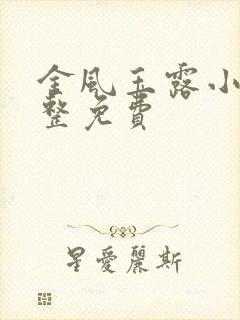 金風玉露小
整免費
星愛麗斯